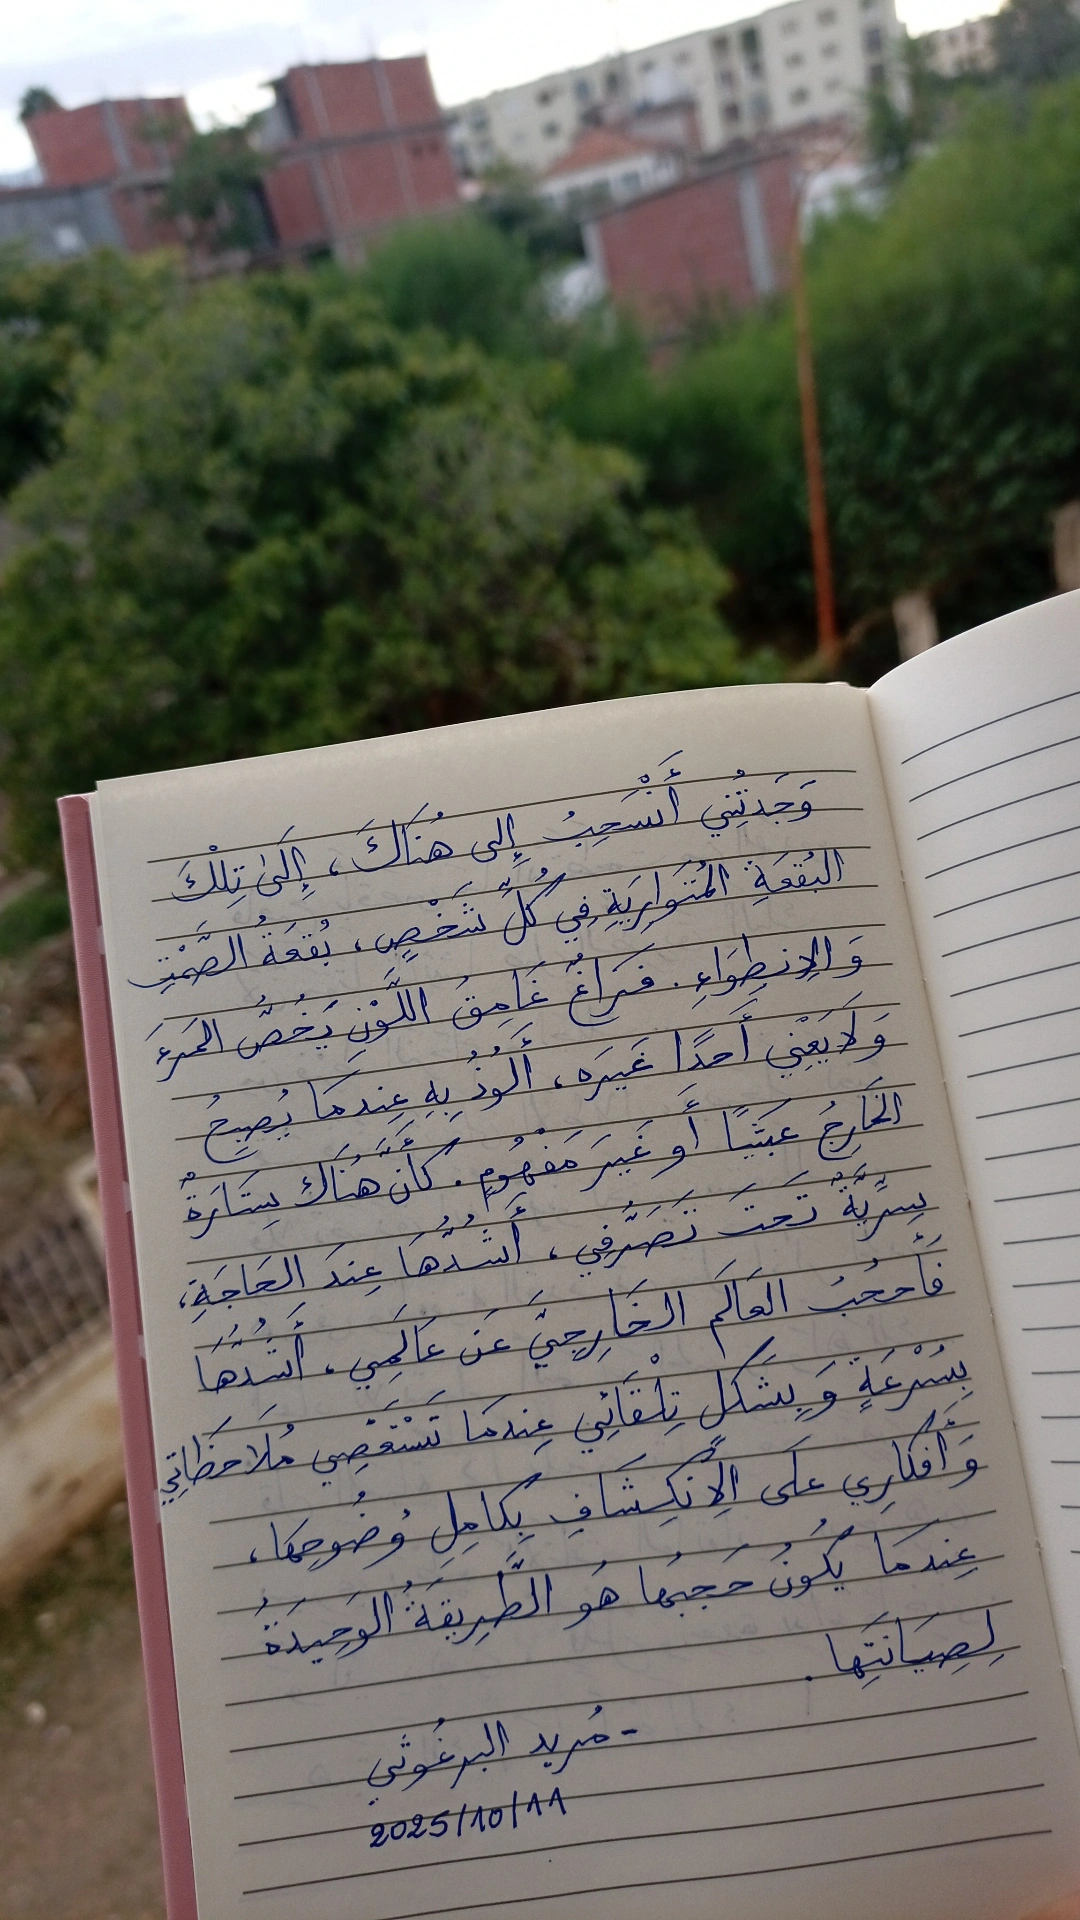 وَجَدتُنِي أَنْسَحِبُ إِلى هُنَاكَ، إِلَىٰ تِلْكَ
البُقعَةِ المُتَوارِيَةِ فِي كُلِّ شَخْصٍ، بُقعَةُ الصَّمْتِ
وَ الِانطِوَاءِ. فَرَاغٌ غَامِقُ اللَّوْنِ يَخُصُّ المَرءَ
وَلَا يَعْنِي أَحدًا غَيرَه، أَلُوذُ بِهِ عِندمَا يُصبِحُ
الخَارِجُ عبَثيًا أَو غَيرَ مَفْهُومٍ. كأَنَّ هُنَاكَ سِتَارَةٌ
سِرِّيَّةٌ تَحتَ تَصَرُّفِي، أَشُدُّهَا عِندَ الحَاجَةِ،
فَأَحجُبُ العَالَم الخَارِجِيَّ عَن عَالَمِي، أَشُدُّهَا
بِسُرْعَةٍ وَ بِشَكلٍ تِلْقَائِي عِندمَا تَسْتَعْصِي مُلَاحظَاتِي
وَ أَفكَارِي علَى الِانْكِشَافِ بِكامِلِ وُضُوحِهَا،
عِندمَا يَكُونُ حَجبُها هُو الطَّرِيقَةُ الوَحِيدَةُ
لِصِيَانَتِها.
- مُريد البرغُوثي
2025/10/11